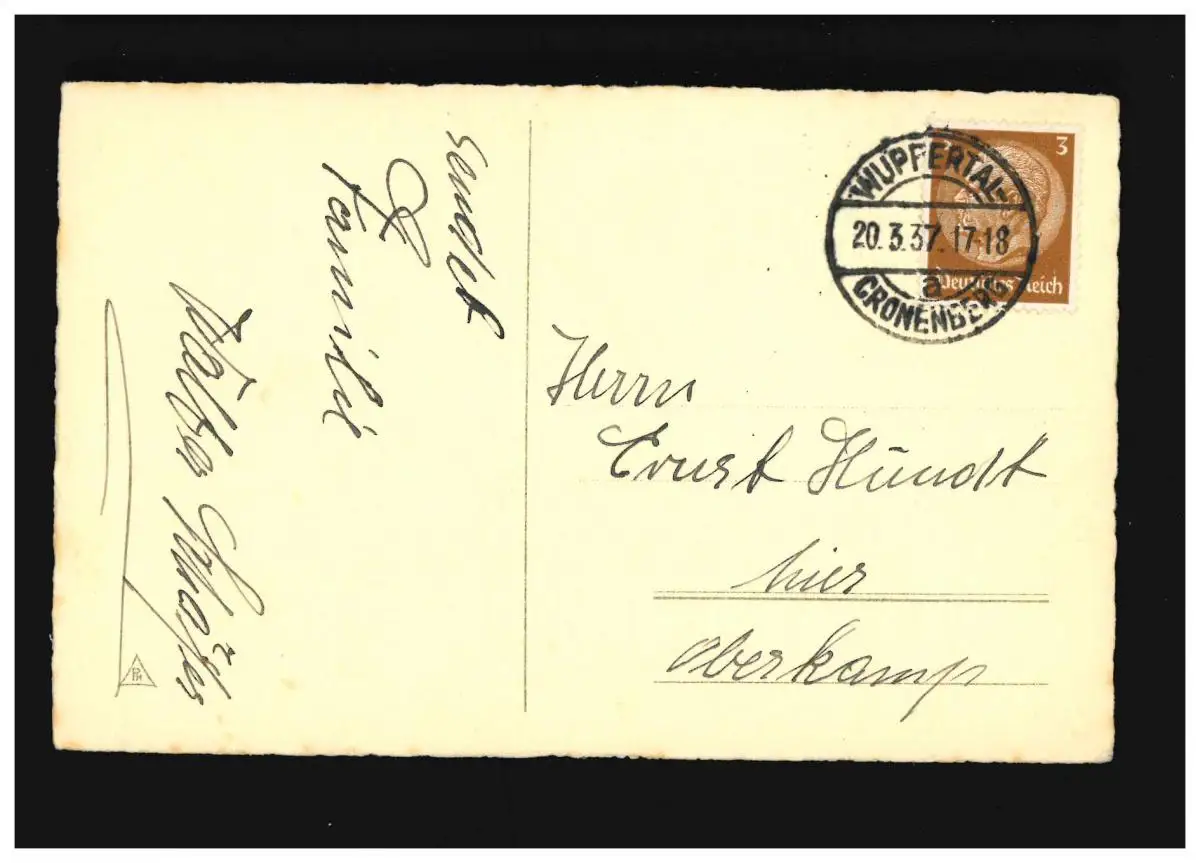 sendet
Familie
Walter Schäfer
WUPPERTAL-
20.3.37.17-18
a
CRONENBERG
3
Deutsches Reich
Herrn
Ernst Hundt
hier
Oberkamp
PH